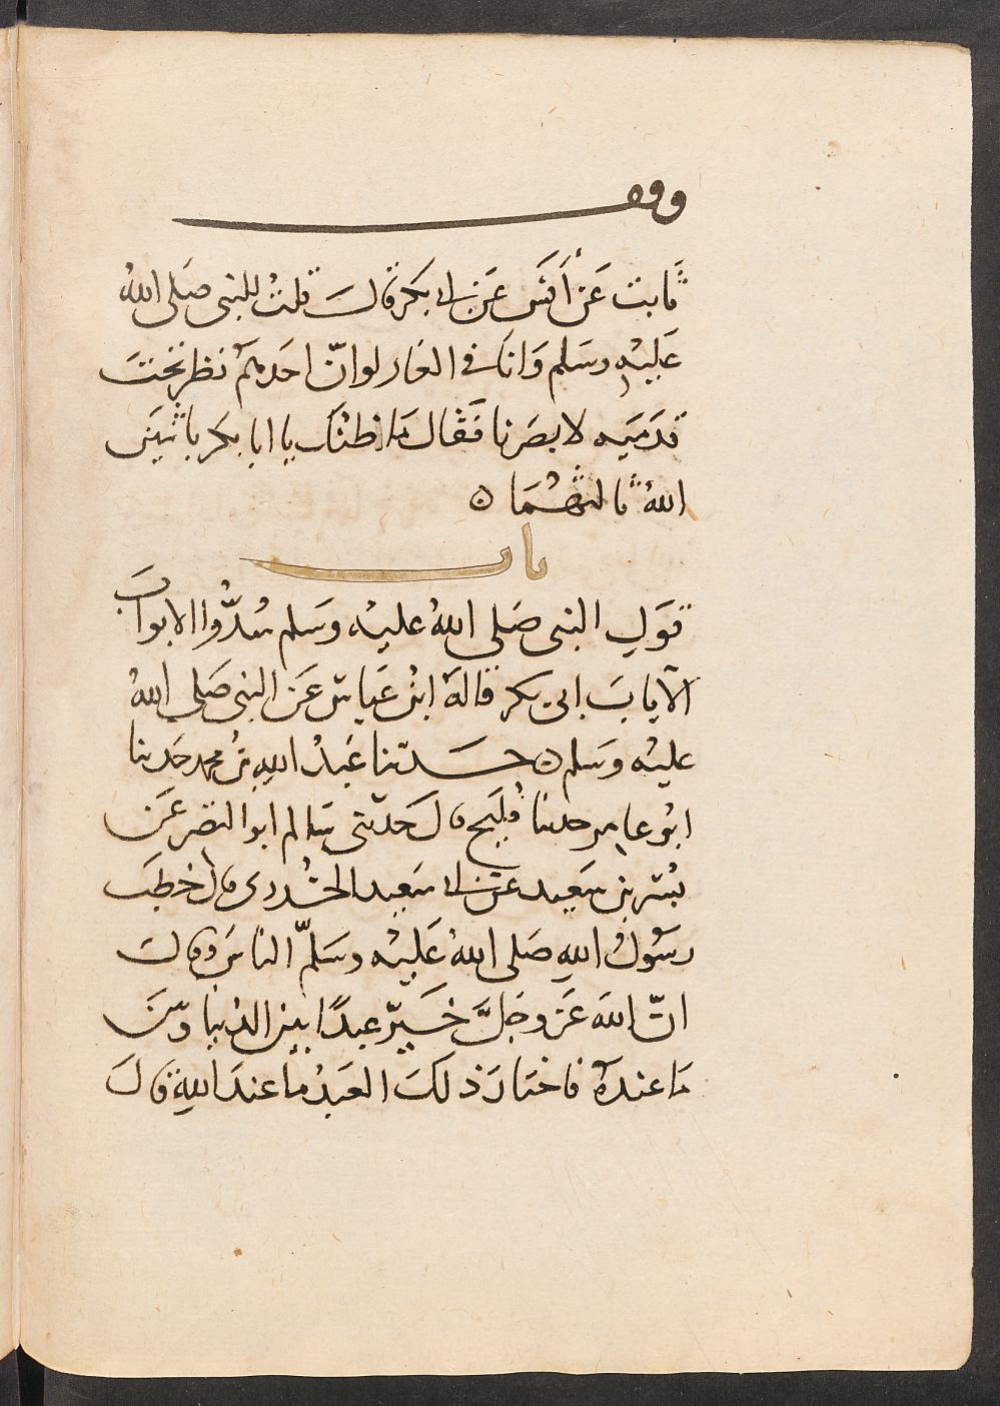 وقف
ثابت عَنْ أَنَس عَن ابى بكر قالَ قلتُ للنبى صَلى اللهُ
عَليْهِ وسَلم وَانا فى الغار لو انّ احَدهُم نظر تحْتَ
قدَمَيه لابصَرنا فقَال مَا ظنُّك يا ابا بكر باثنيَن
اللهُ ثالثهُمَا ۝
باب
قَولِ النبى صَلى اللهُ عليْه وَسَلم سُدُّوا الابوابَ
الا بابَ ابى بكر قالهَ ابنُ عَباس عَن النبى صَلى اللهُ
عليْه وَسَلم ۝ حَدّثنا عَبدُ اللهِ بنُ محمد حَدثنا
ابُو عامر حدثنا فُليَح قال حَدّثنى سَالم ابو النضر عَن
بُسْر بن سَعيد عَن ابى سَعِيد الخُدرى قال خطبَ
رسُولُ اللهِ صَلى اللهُ عَليْه وسَلّم الناسَ وقالَ
انّ اللهَ عَز وجَلَّ خَيّر عبدًا بين الدُنيا وبَينَ
مَا عندهُ فاختَارَ ذلكَ العَبدُ ما عندَ اللهِ قالَ